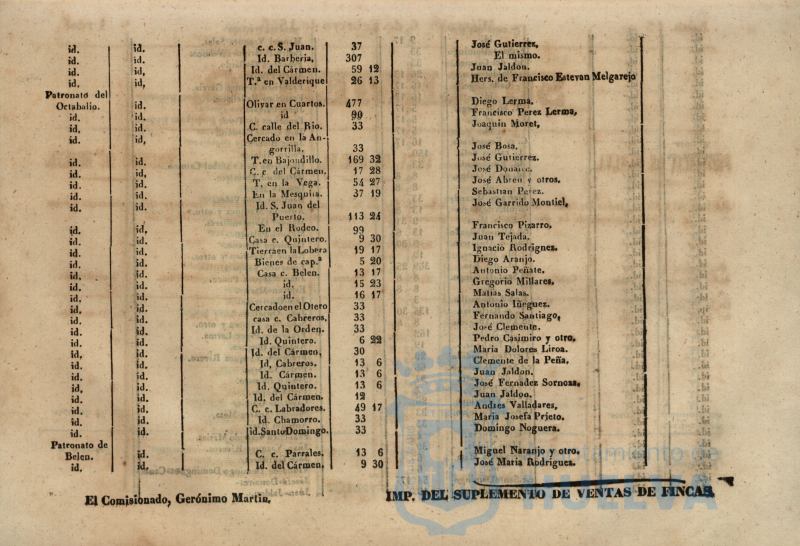 id. id. c. c. S. Juan. 37 José Gutierrez,
id. id. Id. Barberia, 307 El mismo.
id. id, Id. del Cármen. 59 12 Juan Jaldon.
id. id, T.ª en Valderique 26 13 Hers. de Francisco Estevan Melgarejo
Patronato del
Octabalio. id. Olivar en Cuartos. 477 Diego Lerma.
id. id. id 90 Francisco Perez Lerma,
id. id. C. calle del Rio. 33 Joaquin Moret,
id. id, Cercado en la An-
gorrilla. 33 José Bosa,
id. id. T. en Bajondillo. 169 32 José Gutierrez.
id. id. C. c del Cármen, 17 28 José Donaire.
id. id. T. en la Vega. 54 27 José Abreu y otros.
id. id. En la Mesquita. 37 19 Sebastian Perez.
id. id. Id. S. Juan del José Garrido Montiel,
Puerto. 113 24
id. id. En el Rodeo. 99 Francisco Pizarro,
id. id. Casa c. Quintero. 9 30 Juan Tejada.
id. id. Tierra en la Lobera 19 17 Ignacio Rodriguez.
id. id. Bienes de cap.ª 5 20 Diego Aranjo.
id. id. Casa c. Belen. 13 17 Antonio Peñate.
id. id. id. 15 23 Gregorio Millares,
id. id. id. 16 17 Matias Salas.
id. id. Cercado en el Otero 33 Antonio Iñeguez.
id. id. casa c. Cabreros, 33 Fernando Santiago,
id. id. Id. de la Orden. 33 José Clemente.
id. id. Id. Quintero. 6 22 Pedro Casimiro y otro,
id, id. Id. del Cármen, 30 Maria Dolores Liroa.
id, id. Id, Cabreros, 13 6 Clemente de la Peña,
id. id. Id. Cármen. 13 6 Juan Jaldon.
id. id. Id. Quintero. 13 6 José Fernadez Sornosa,
id. id. Id. del Cármen. 12 Juan Jaldon.
id. id. C. c. Labradores. 49 17 Andres Valladares,
id. id. Id. Chamorro. 33 Maria Josefa Prieto.
id. id. id. Santo Domingo. 33 Domingo Noguera.
Patronato de
Belen. id. C. c. Parrales. 13 6 Miguel Naranjo y otro.
id. id. Id. del Cármen. 9 30 José Maria Rodriguez.
El Comisionado, Gerónimo Martin.
IMP. DEL SUPLEMENTO DE VENTAS DE FINCAS.
HUELVA